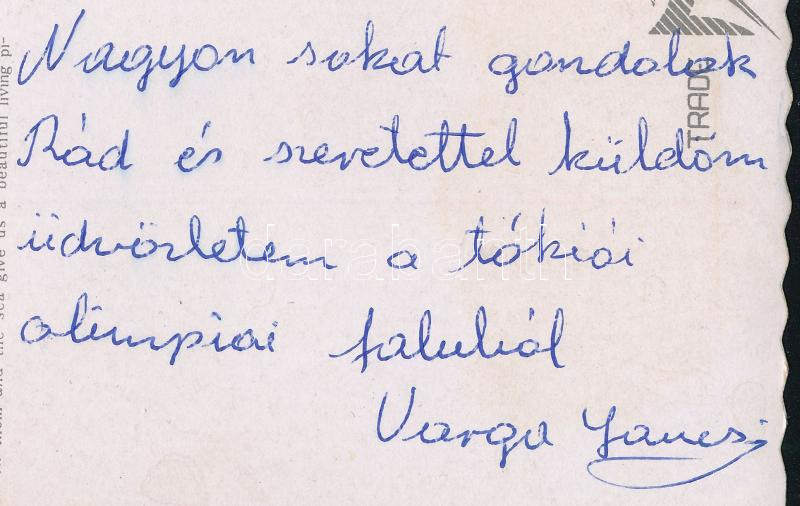 Nagyon sokat gondolok
Rád és szeretettel küldöm
üdvözletem a tókiói
olimpiai faluból
Varga Jancsi
TRADE
them and the sea give us a beautiful living pi-
darabanth